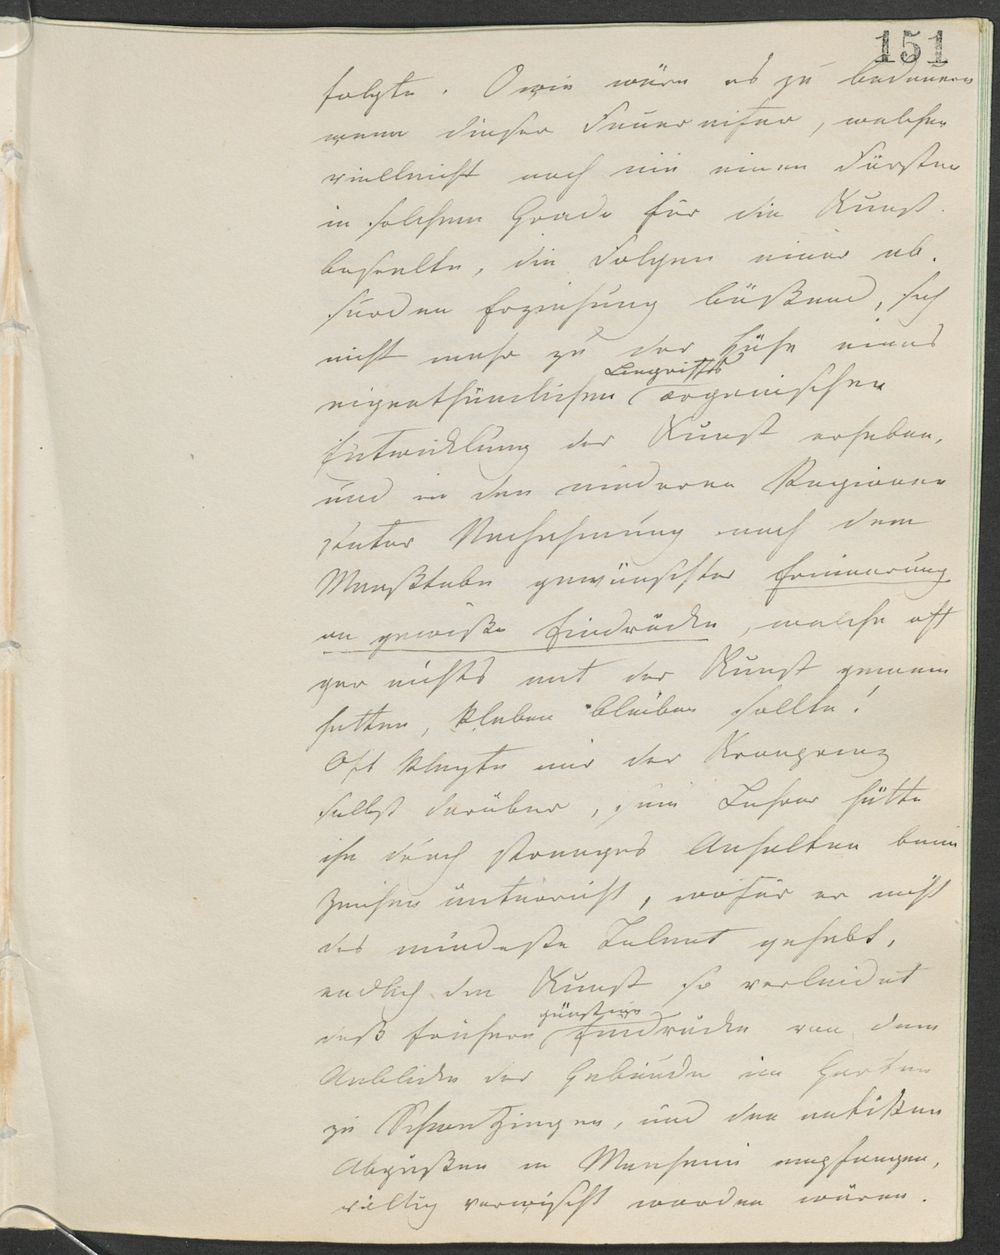 151
folgte. O wie wäre es zu bedauern
wenn dieser Feuereifer, welcher
vielleicht noch nie einen Fürsten
in solchem Grade für die Kunst
beseelte, die Folgen einer ab-
surden Erziehung büßend, sich
nicht mehr zu der Höhe eines
Begriffes
eigenthümlichen organischer
Entwicklung der Kunst erheben,
und in den niederen Regionen
Nachahmung nach dem
Maaßstabe gewünschter Erinnerung
an gewisse Eindrücke, welche oft
gar nichts mit der Kunst gemein
hatten, kleben bleiben sollte!
Oft klagte mir der Kronprinz
selbst darüber, sein Lehrer hätte
ihn durch strenges Anhalten beim
Zeichenunterricht, wofür er nicht
das mindeste Talent gehabt,
endlich die Kunst so verleidet
günstige
daß frühere Eindrücke von dem
Anblicke der Gebäude im Garten
zu Schwetzingen, und den antiken
Abgüßen in Manheim empfangen,
völlig verwischt worden wären.